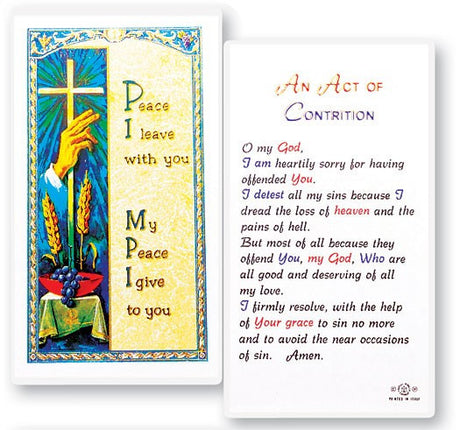 Peace
I leave
with you
My
Peace
I give
to you
AN ACT OF
CONTRITION
O my God,
I am heartily sorry for having
offended You.
I detest all my sins because I
dread the loss of heaven and the
pains of hell.
But most of all because they
offend You, my God, Who are
all good and deserving of all
my love.
I firmly resolve, with the help
of Your grace to sin no more
and to avoid the near occasions
of sin. Amen.
PRINTED IN ITALY